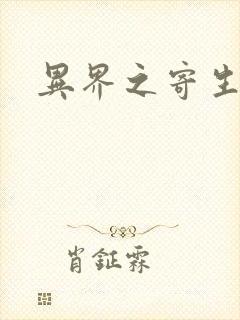 異界之寄生
肖鉦霖